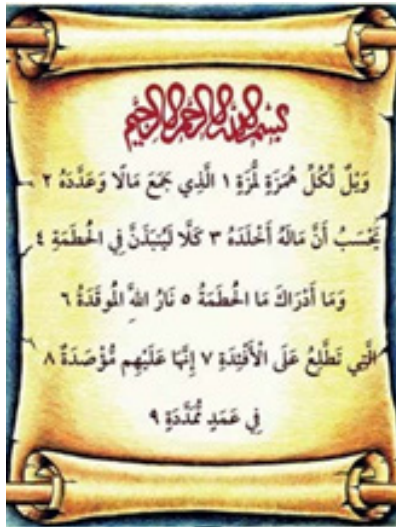 بسم الله الرحمن الرحيم
وَيْلٌ لِّكُلِّ هُمَزَةٍ لُّمَزَةٍ ١ الَّذِي جَمَعَ مَالًا وَعَدَّدَهُ ٢
يَحْسَبُ أَنَّ مَالَهُ أَخْلَدَهُ ٣ كَلَّا لَيُنبَذَنَّ فِي الْحُطَمَةِ ٤
وَمَا أَدْرَاكَ مَا الْحُطَمَةُ ٥ نَارُ اللَّهِ الْمُوقَدَةُ ٦
الَّتِي تَطَّلِعُ عَلَى الْأَفْئِدَةِ ٧ إِنَّهَا عَلَيْهِم مُّؤْصَدَةٌ ٨
فِي عَمَدٍ مُّمَدَّدَةٍ ٩